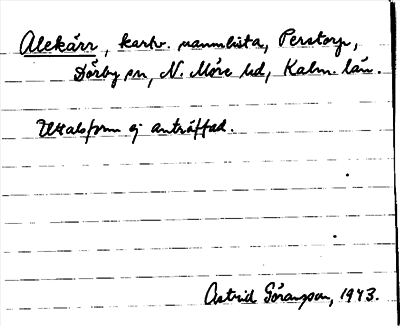 Alekärr, kartv. namnlista, Perstorp,
Dörby sn, N. Möre hd, Kalm. län.
Uttalsform ej anträffad.
Astrid Göransson, 1943.